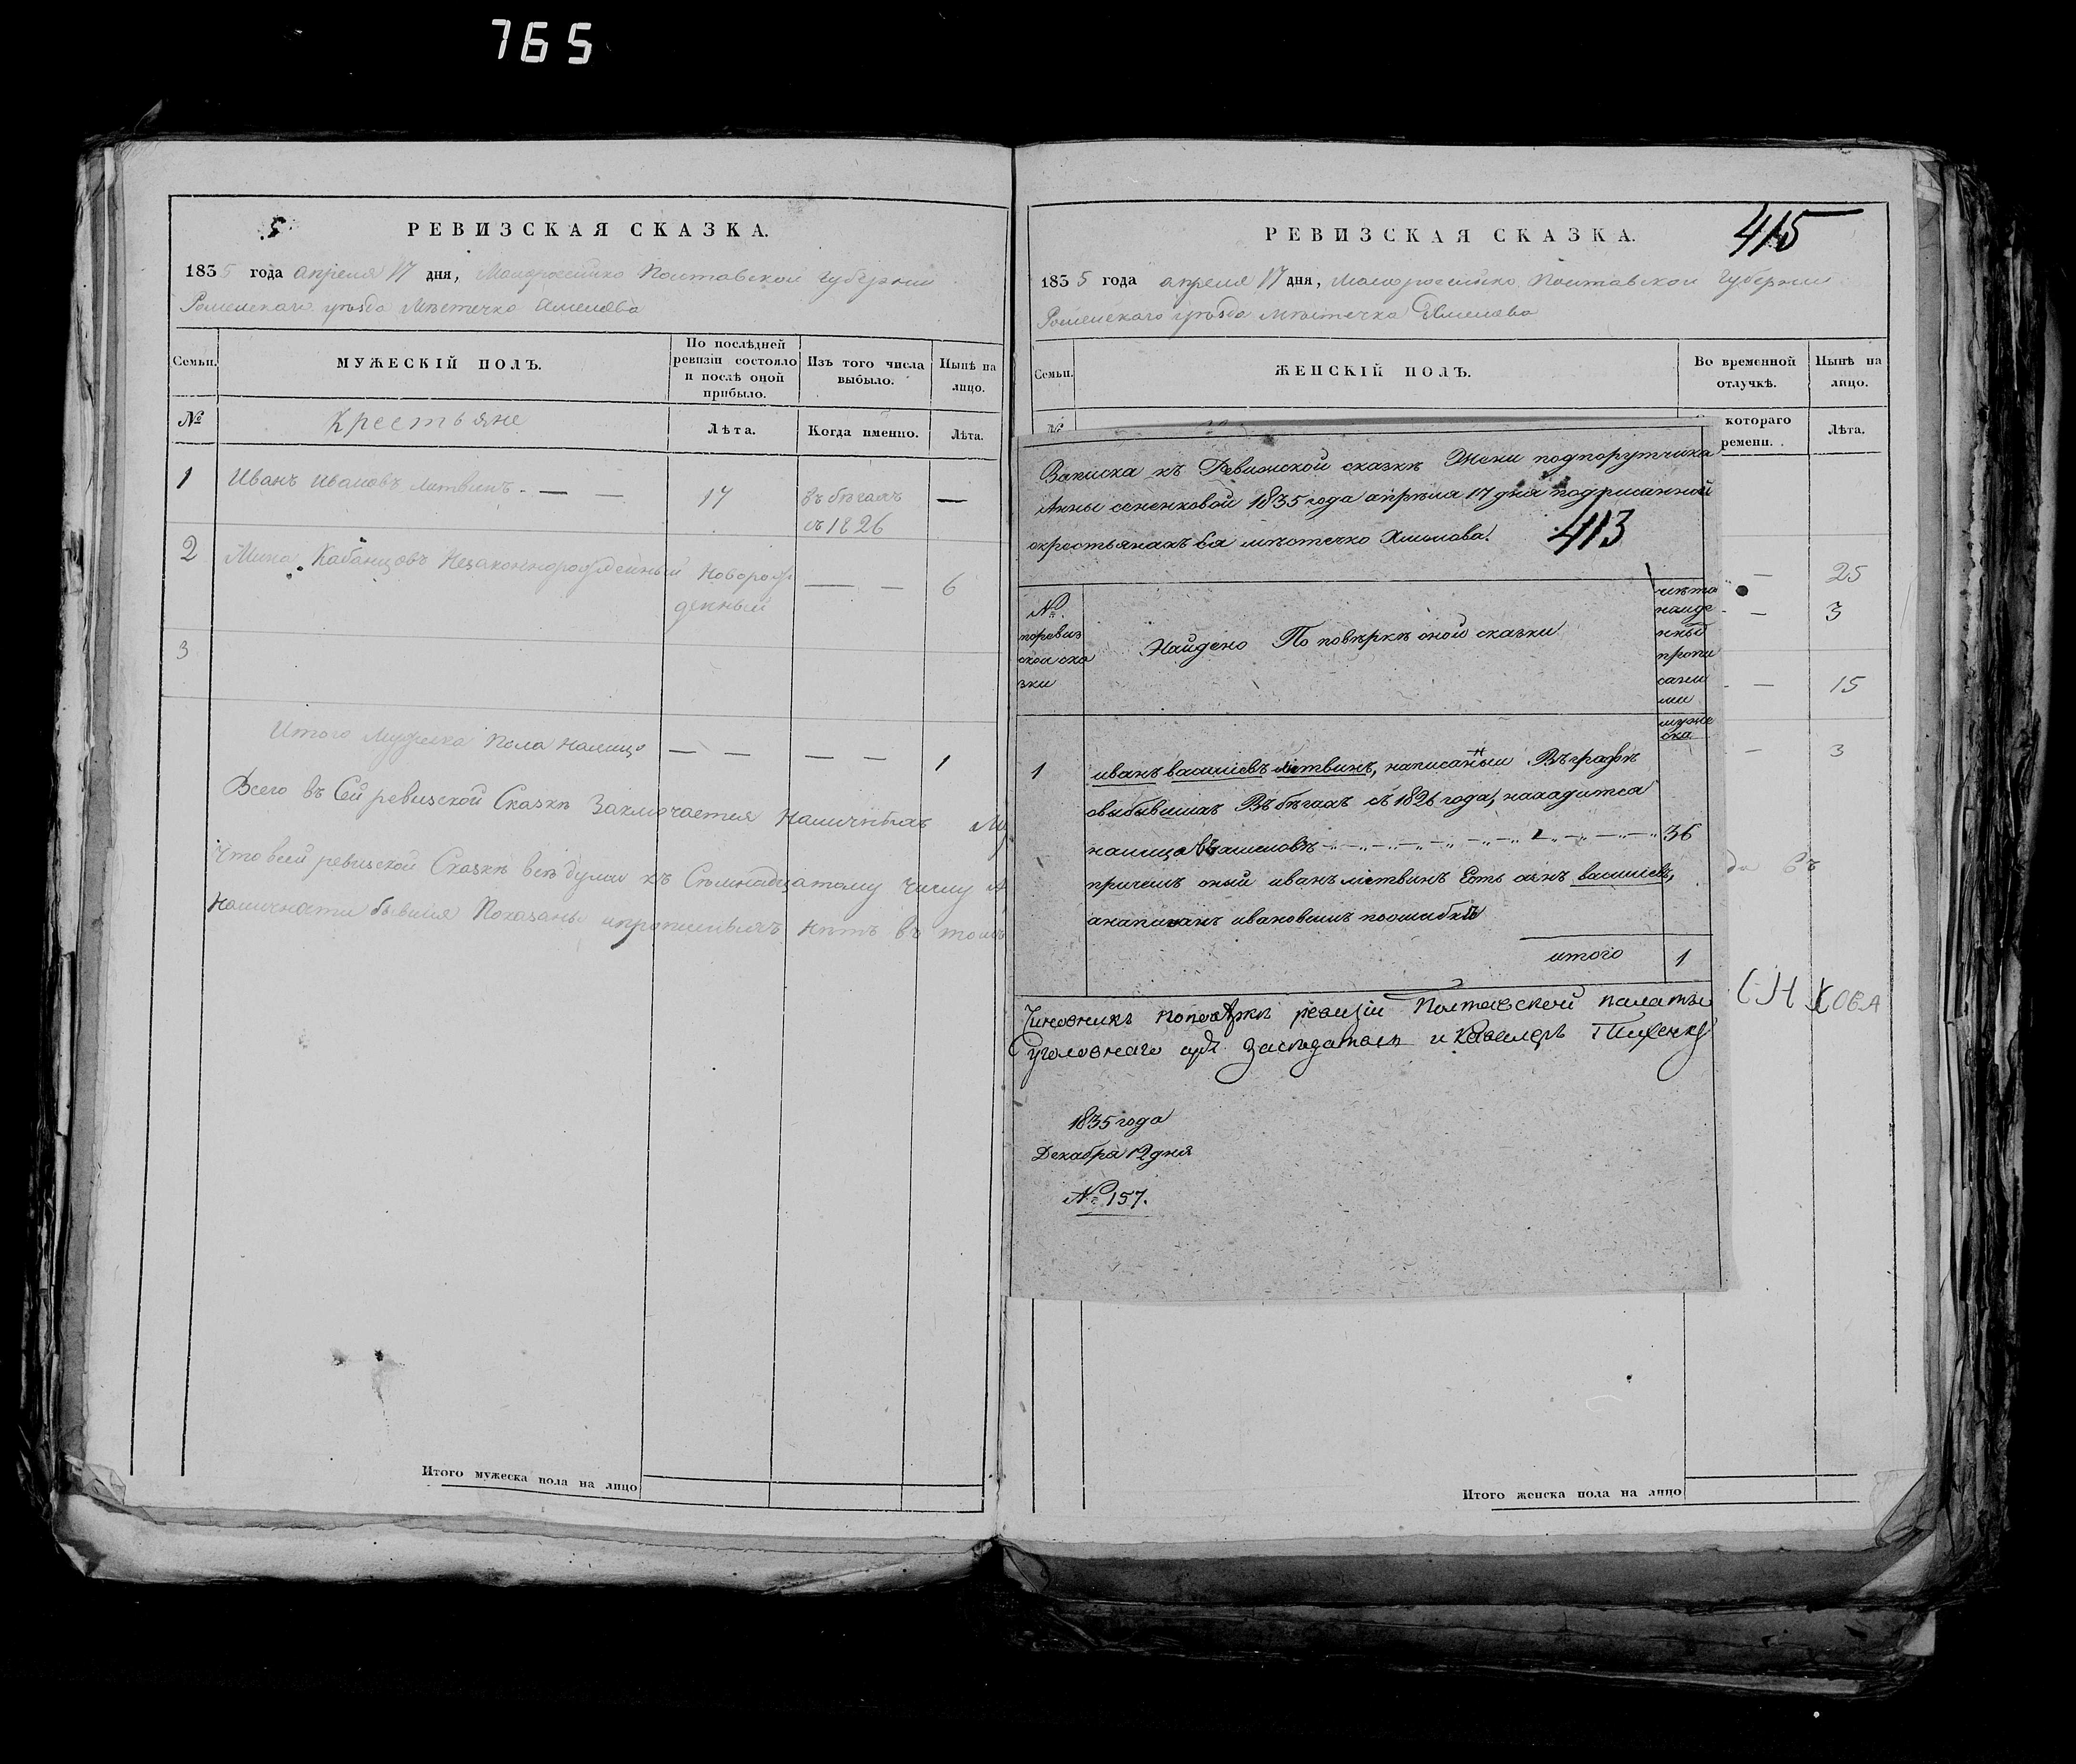 765
5.
РЕВИЗСКАЯ СКАЗКА.
1835 года апреля 17 дня, Малороссийско Полтавской Губернии
Роменскаго уѣзда Мѣстечко Хмелева
Семьи.
МУЖЕСКІЙ ПОЛЪ.
По послѣдней ревизіи состояло и послѣ оной прибыло.
Изъ того числа выбыло.
Нынѣ на лицо.
№
Крестьяне
Лѣта.
Когда именно.
Лѣта.
1 Иванъ Ивановъ Литвинъ. — — 17 въ бѣгахъ —
съ 1826
2 Мина Кабанцовъ Незаконнорожденный Новорож — — 6
денный
3
Итого Мужеска Пола налицо — — — — 1
Всего въ Сей ревизской Сказкѣ Заключается Наличныхъ Му
Что въ сей ревизской Сказкѣ всѣ души къ Семнадцатому Числу А
Наличнати бывшия Показаны и прописныхъ Нѣтъ въ томъ
Итого мужеска пола на лицо
РЕВИЗСКАЯ СКАЗКА.
415
1835 года апреля 17 дня, Малороссийско Полтавской Губернии
Роменскаго уѣзда мѣстечка Хмелева
Семьи.
ЖЕНСКІЙ ПОЛЪ.
Во временной отлучкѣ.
Нынѣ на лицо.
№
котораго
ремени.
Лѣта.
— 25
— 3
— 15
— 3
да въ
нкова
Записка къ Ревизской сказкѣ Жени подпорутчика
Анны сененковой 1835 года апрѣля 17 дня подписанной
окрестьянахъ Ея мѣстечко Хмелова.
413
№
поревиз
ской ска
зки
Найдено По повѣркѣ оной сказки
лѣта
найде
нныъ
пропи
сани
ми
муже
ска
1 иванъ василіевъ литвинъ, написанный Въ графѣ
овыбывшихъ Въ бѣгахъ съ 1826 года, находится
налицо въ хмеловѣ 1 36
причемъ оный иванъ литвинъ Есть сынъ василіевъ,
анаписанъ ивановымъ поошибкѣ
итого 1
Чиновникъ поповѣркѣ ревизіи Полтавской палаты
Уголовнаго суда Засѣдатель и Кавалеръ
1835 года
Декабря 12 дня
№ 157.
Итого женска пола на лицо